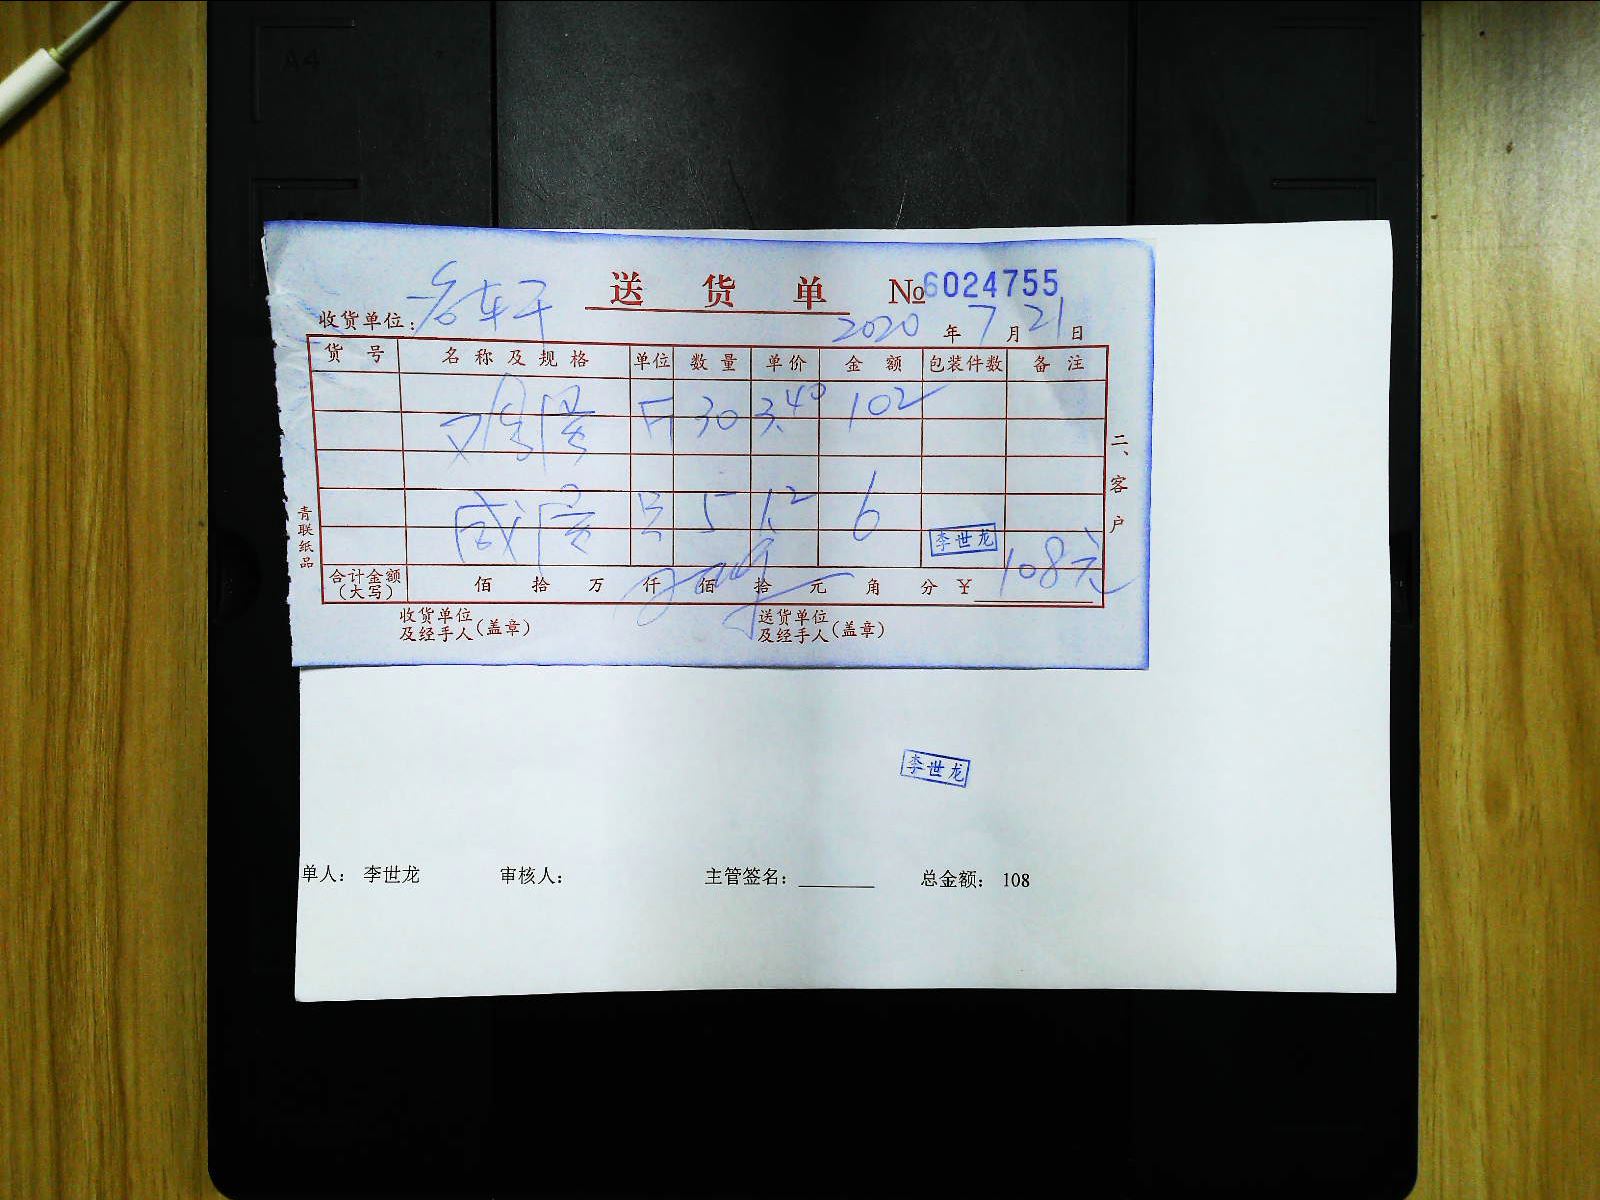 送货单 №6024755
收货单位: 2020年7月21日
货号 名称及规格 单位 数量 单价 金额 包装件数 备注
鸡蛋 斤 30 3.40 102
咸蛋 只 5 1.2 6
李世龙
合计金额(大写) 佰 拾 万 仟 佰 拾 元 角 分 ¥108元
收货单位及经手人(盖章) 送货单位及经手人(盖章)
二、客户
青联纸品
李世龙
单人: 李世龙 审核人: 主管签名: 总金额: 108
A4